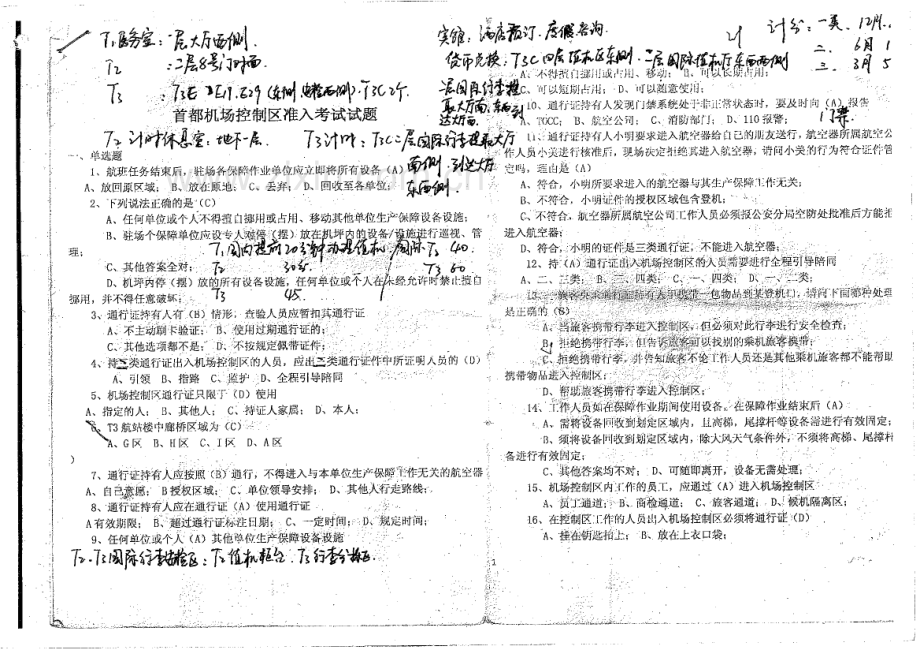 T1医务室：一层大厅西侧.
T2 ：二层8号门对面
T3 ：T3E
首都机场控制区准入考试试题
T2 计时休息室：地下一层
T3计时：T3C二层国际行李提取大厅
西侧.到达大厅
东西侧.
一、单选题
1、航班任务结束后，驻场各保障作业单位应立即将所有设备（A）
A、放回原区域； B、放在原地； C、丢弃； D、回收至各单位；
2、下列说法正确的是（C）
A、任何单位或个人不得擅自挪用或占用、移动其他单位生产保障设备设施；
B、驻场个保障单位应设专人对停（摆）放在机坪内的设备/设施进行巡视、管
理；
T1国内提前20分钟办理值机 T3 40.
C、其他答案全对； T2 30分. T3 60
D、机坪内停（摆）放的所有设备设施，任何单位或个人在未经允许时禁止擅自
挪用，并不得任意破坏； T3 45.
3、通行证持有人有（B）情形，查验人员应暂扣其通行证
A、不主动刷卡验证； B、使用过期通行证的；
C、其他选项都不是； D、不按规定佩带证件；
4、持三类通行证出入机场控制区的人员，应出二类通行证件中所证明人员的（D）
A、引领 B、指路 C、监护 D、全程引导陪同
5、机场控制区通行证只限于（D）使用
A、指定的人； B、其他人； C、持证人家属； D、本人；
6、T3航站楼中廊桥区域为（C）
A、G区 B、H区 C、I区 D、A区
）
7、通行证持有人应按照（B）通行，不得进入与本单位生产保障工作无关的航空器
A、自己意愿； B授权区域； C、单位领导安排； D、其他人行走路线；
8、通行证持有人应在通行证（A）使用通行证
A有效期限； B、超过通行证标注日期； C、一定时间； D、规定时间；
9、任何单位或个人（A）其他单位生产保障设备设施
宾馆：酒店预订.度假咨询
计分：一类.12月.
二、6月1
三、3月5
货币兑换：T3C四层值机区东侧.二层国际值机厅东西两侧
A、不得擅自挪用或占用、移动； B、可以长期占用；
C、可以短期占用； D、可以随意使用；
10、通行证持有人发现门禁系统处于非正常状态时，要及时向（A）报告
A、TOCC； B、航空公司； C、消防部门； D、110报警； 门禁
11、通行证持有人小明要求进入航空器给自己的朋友送行，航空器所属航空公
作人员小美进行核准后，现场决定拒绝其进入航空器，请问小美的行为符合证件管
定吗，理由是（A）
A、符合，小明所要求进入的航空器与其生产保障工作无关；
B、不符合，小明证件的授权区域包含登机；
C、不符合，航空器所属航空公司工作人员必须报公安分局空防处批准后方能拒
进入航空器；
D、符合，小明的证件是三类通行证，不能进入航空器；
12、持（A）通行证出入机场控制区的人员需要进行全程引导陪同
A、二、三类； B、三、四类； C、一、四类； D、一、二类；
是正确的（B）
A、当旅客携带行李进入控制区，但必须对此行李进行安全检查；
B、拒绝携带行李，但告诉旅客可以找别的乘机旅客携带；
C、拒绝携带行李，并告知旅客不论工作人员还是其他乘机旅客都不能帮助
携带物品进入控制区；
D、帮助旅客携带行李进入控制区；
14、工作人员如在保障作业期间使用设备，在保障作业结束后（A）
A、需将设备回收到划定区域内，且高梯、尾撑杆等设备浴进行有效固定；
B、须将设备回收到划定区域内，除大风天气条件外，不须将高梯、尾撑杆
备进行有效固定；
C、其他答案均不对； D、可随即离开，设备无需处理；
15、机场控制区内工作的员工，应通过（A）进入机场控制区
A、员工通道； B、商检通道； C、旅客通道； D、候机隔离区；
16、在控制区工作的人员出入机场控制区必须将通行证（D）
A、挂在钥匙扣上； B、放在上衣口袋；
1